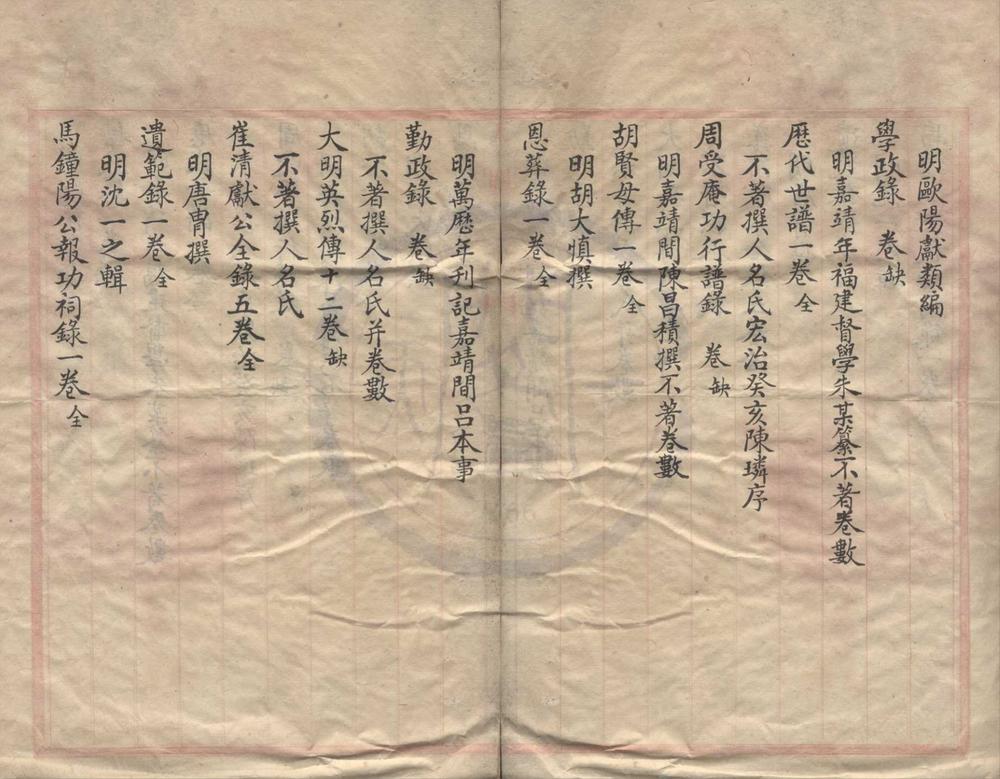 明歐陽獻類編
學政錄　卷缺
明嘉靖年福建督學朱某纂不著卷數
歷代世譜一卷全
不著撰人名氏宏治癸亥陳璘序
周受庵功行譜錄　卷缺
明嘉靖間陳昌積撰不著卷數
胡賢母傳一卷全
明胡大慎撰
恩葬錄一卷全
明萬歷年刊記嘉靖間呂本事
勤政錄　卷缺
不著撰人名氏并卷數
大明英烈傳十二卷缺
不著撰人名氏
崔清獻公全錄五卷全
明唐胄撰
遺範錄一卷全
明沈一之輯
馬鐘陽公報功祠錄一卷全